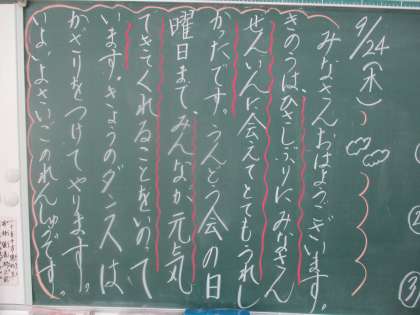 9/24(木)
みなさんおはようございます。
きのうは、ひさしぶりにみなさん
ぜんいんに会えてとてもうれし
かったです。うんどう会の日
曜日まで、みんなが元気
できてくれることをいのって
います。きょうのダンスは、
かざりをつけてやります。
いよいよさいごのれんしゅうです。
②
③